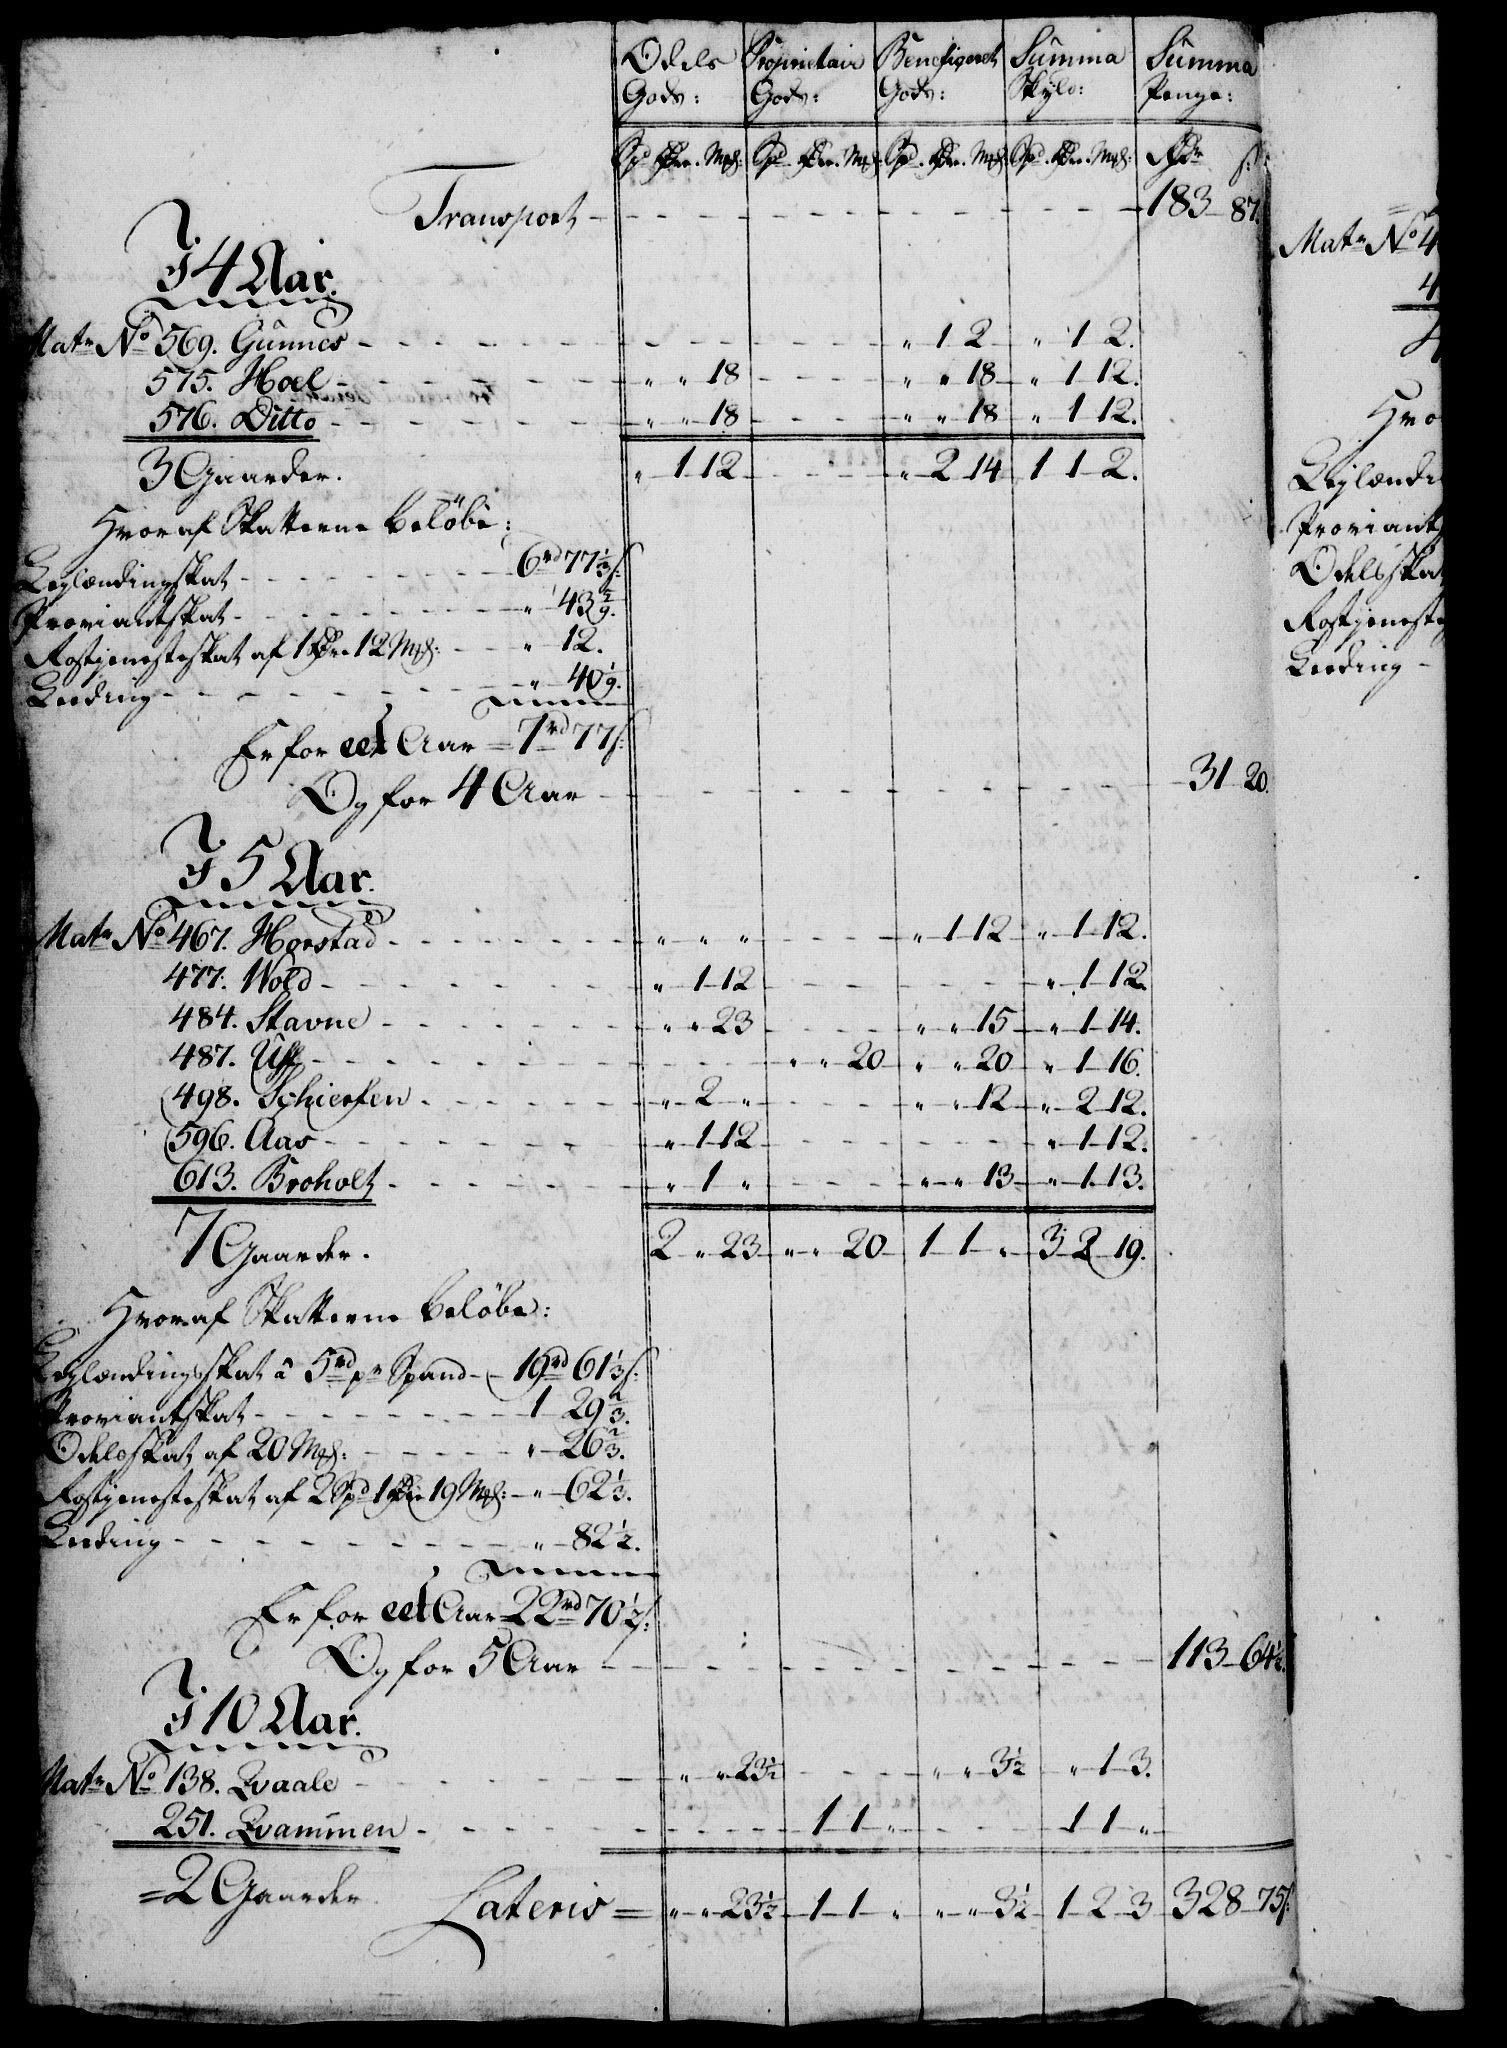 Odels Gods: Proprietair Gods: Beneficeret Gods: Summa Skyld: Summa Penge:
Spd Ør. Mrk: Spd. Ør. Mrk: Spd. Ør. Mrk: Spd. Ør. Mrk: Rdr s:
Transport - 183 - 87.
I 4 Aar.
Matr No 569. Gunnes - - - " 1 2 " 1 2.
575. Hoel - " " 18 - - " " 18 - " 1 12.
576. Ditto - " " 18 - - " " 18 " 1 12.
3 Gaarder. " 1 12 - - " 2 14 1 1 2.
Hvoraf Skatterne beløbe:
Leylændingskat - 6rd 77 1/3 s:
Proviantskat - " 43 2/9.
Rostjenesteskat af 1 Ør. 12 Mrk: - " 12.
Leeding - " 40 1/9.
Er for eet Aar = 7rd 77 s:
Og for 4 Aar - 31 - 20.
I 5 Aar.
Matr No 467. Horstad - " " " - - " 1 12 " 1 12.
477. Wold - " 1 12 - - - " 1 12.
484. Stavne - " " 23 - - " " 15 " 1 14.
487. - - " " 20 " " 20 " 1 16.
498. Schierfen - " 2 " - - " " 12 " 2 12.
596. Aas - " 1 12 - - - " 1 12.
613. Broholt - " 1 " - - " " 13 " 1 13.
7 Gaarder. 2 " 23 " " 20 1 1 " 3 2 19.
Hvoraf Skatterne beløbe:
Leylændingsskat â 5rd pr Spand - 19rd 61 1/3 s:
Proviantskat - 1 29 2/3.
Odelsskat af 20 Mrk: - " 26 2/3.
Rostjenesteskat af 2 Spd 1 Ør 19 Mrk: - " 62 1/3.
Leeding - " 82 1/2.
Er for eet Aar = 22rd 70 1/2 s:
Og for 5 Aar - 113 - 64 1/2.
I 10 Aar.
Matr No 138. Qvaale - " " 23 1/2 - - " " 3 1/2 " 1 3.
251. Qvammen - - 1 1 " - - 1 1 "
= 2 Gaarder. Lateris = " " 23 1/2 1 1 " " " 3 1/2 1 2 3 328 - 75 s:
Matr No 4
4
Hvo
Leylændi
Proviant
Odelsska
Rostjeneste
Leeding -